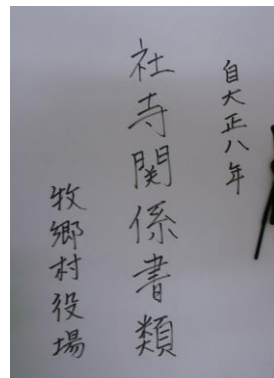 自大正八年
社寺関係書類
牧郷村役場